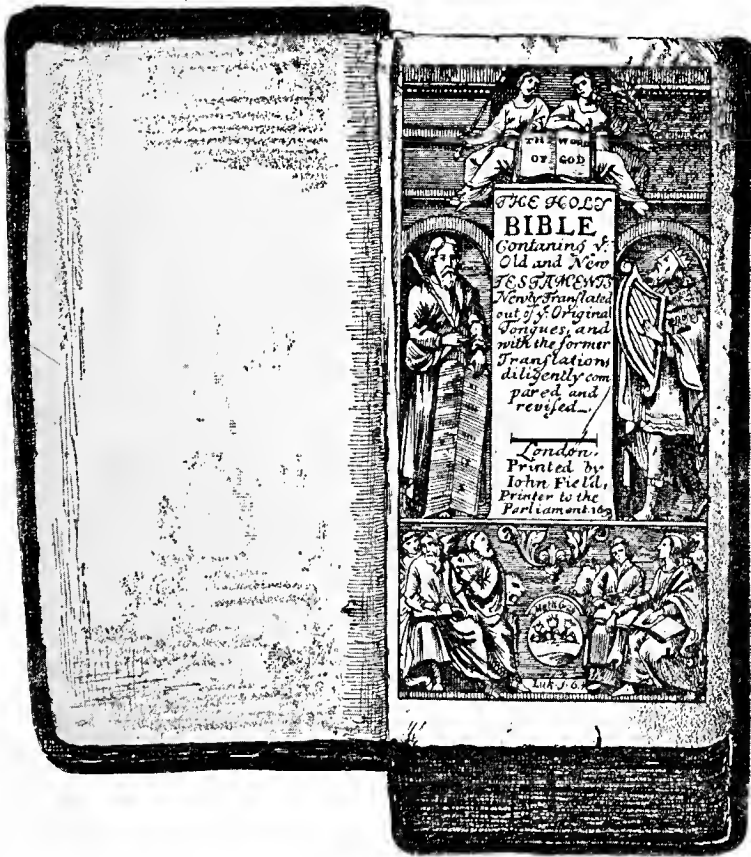 TH WORD
OF GOD
THE HOLY
BIBLE
Contaning yͤ
Old and New
TESTAMENTS
Newly Tranſlated
out of yͤ Original
Tongues, and
with the former
Tranſlations
diligently com
pared and
reviſed
London.
Printed by
Iohn Field,
Printer to the
Parliament. 16
Luk. 1. 6